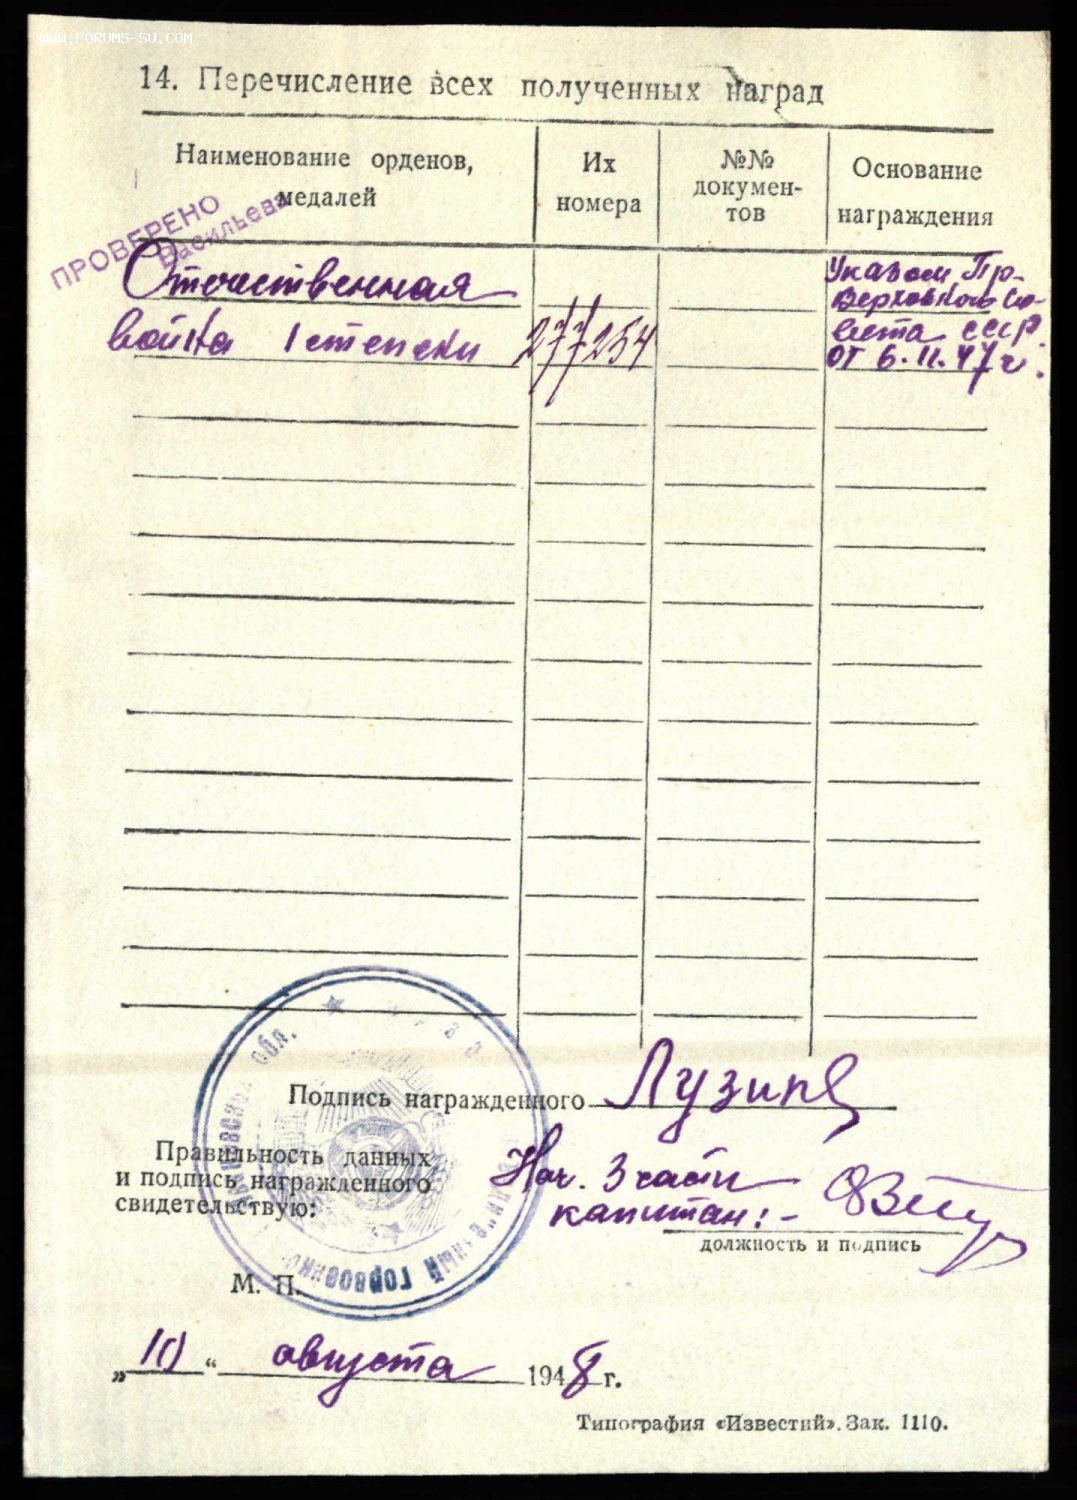 WWW.FORUMS-SU.COM
14. Перечисление всех полученных наград
Наименование орденов, медалей
Их номера
№№ документов
Основание награждения
ПРОВЕРЕНО
Васильева
Отечественная
война 1 степени 277254
Указом Пр.
Верховного Со-
вета СССР
от 6.11.47г.
Подпись награжденного
Правильность данных
и подпись награжденного
свидетельствую:
Нач. 3 части
капитан:-
должность и подпись
обл.
М. П.
„10“ августа 1948 г.
Типография «Известий». Зак. 1110.